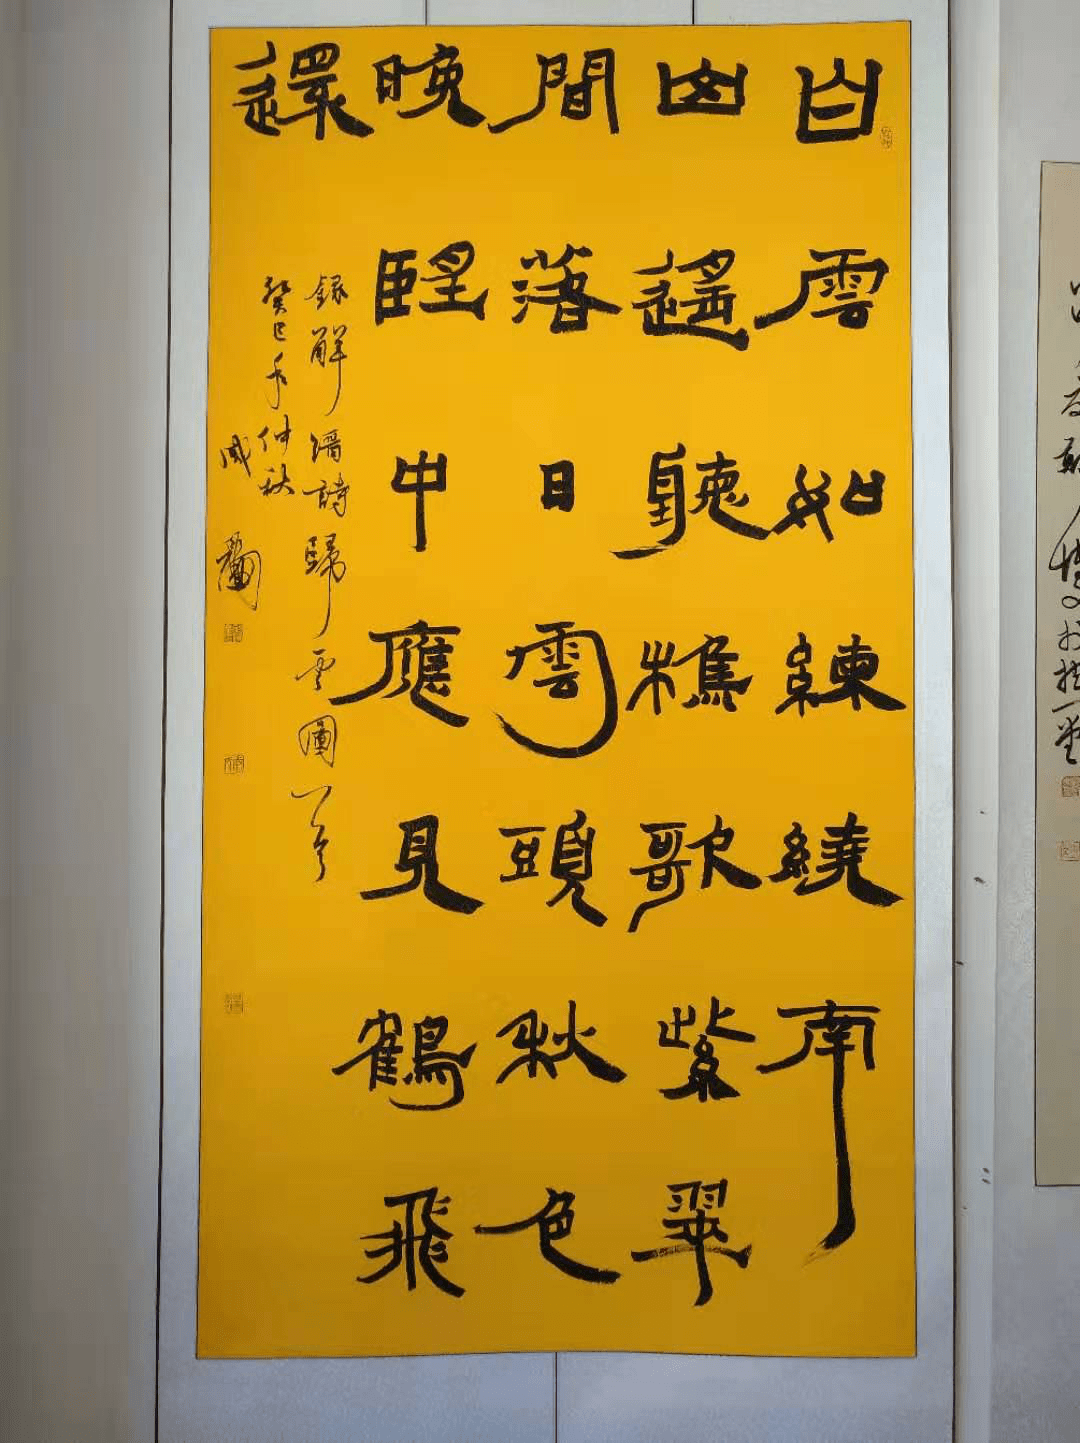 白雲如練繞南
山遙聽樵歌紫翠
間落日雲頭秋色
晚朢中應見鶴飛
還
錄解縉詩歸雲圖一首
癸巳年仲秋